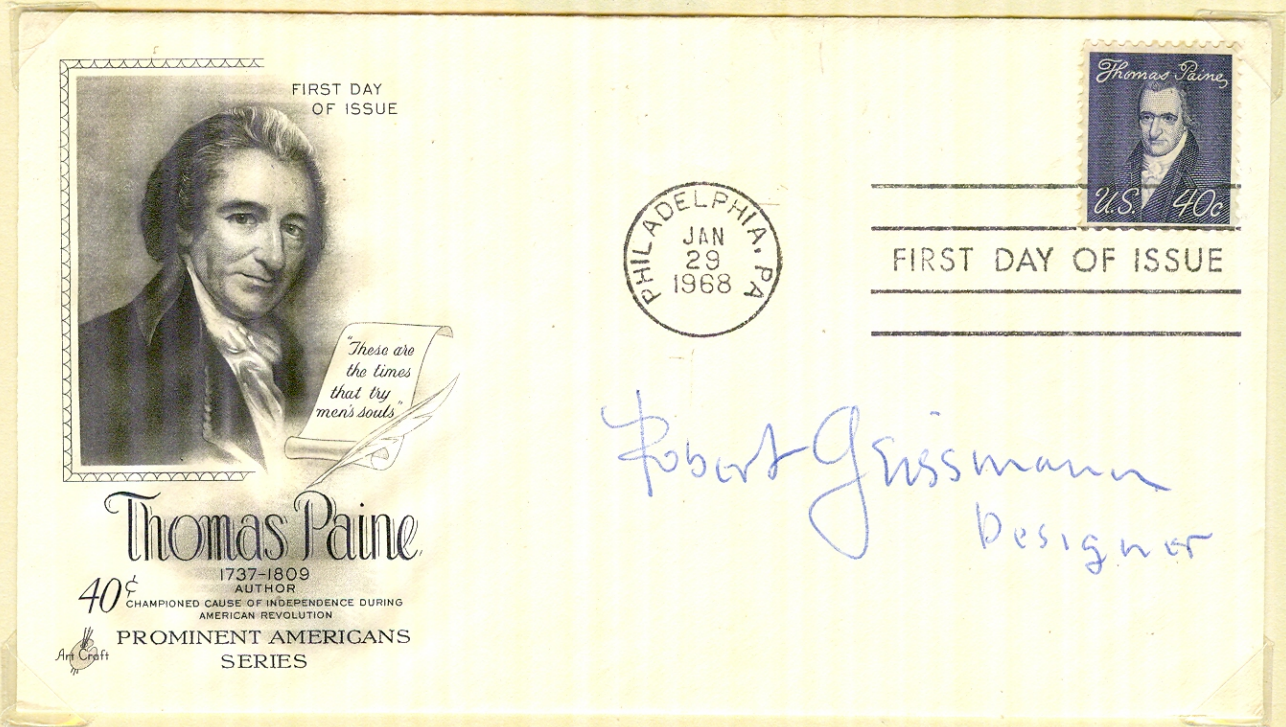 FIRST DAY
OF ISSUE
"These are
the times
that try
men's souls"
Thomas Paine
1737-1809
AUTHOR
40¢
CHAMPIONED CAUSE OF INDEPENDENCE DURING
AMERICAN REVOLUTION
PROMINENT AMERICANS
SERIES
Art Craft
PHILADELPHIA, PA
JAN
29
1968
Thomas Paine
U.S. 40c
FIRST DAY OF ISSUE
Robert Geissmann
Designer